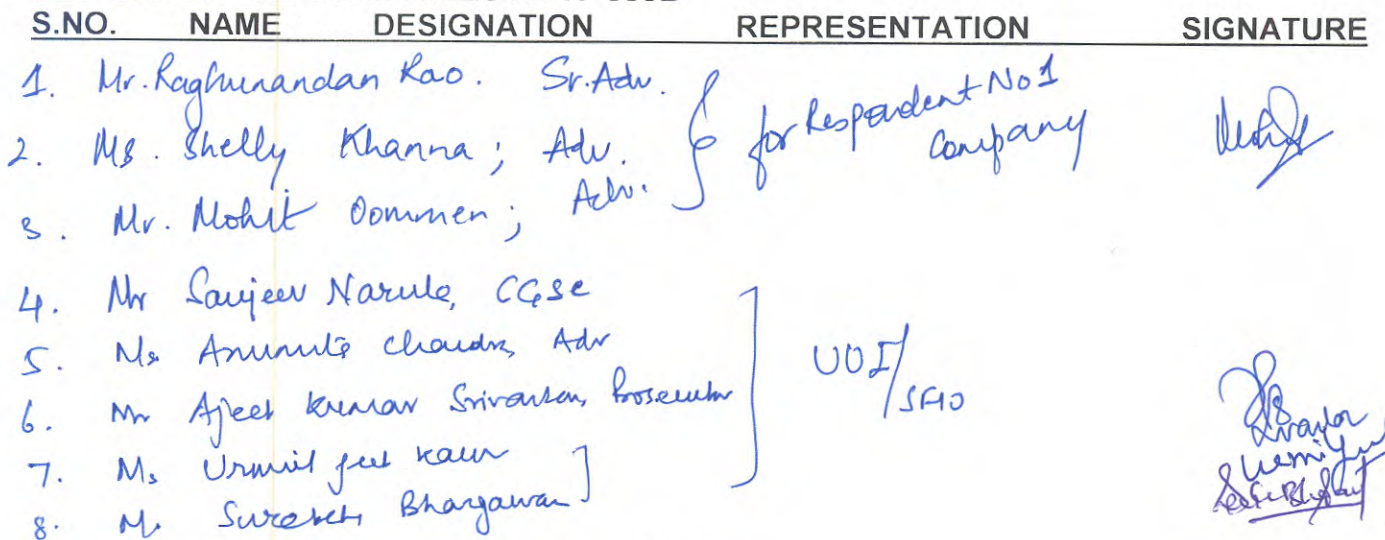 S.NO. NAME DESIGNATION REPRESENTATION SIGNATURE
1. Mr. Raghunandan Rao. Sr. Adv.
2. Ms. Shelly Khanna; Adv.
3. Mr. Mohit Oommen; Adv.
for Respondent No 1
Company
4. Mr Sanjeev Narula, CGSC
5. Ms Chandra, Adv
6. Mr Ajeet Kumar Prosecutor
7. Ms Kaur
8. Suresh
UOI/
SFIO